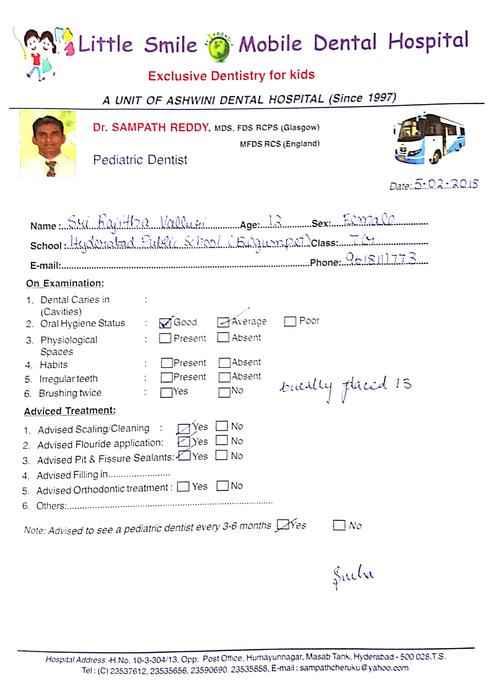 Little Smile Mobile Dental Hospital
Exclusive Dentistry for kids
A UNIT OF ASHWINI DENTAL HOSPITAL (Since 1997)
Dr. SAMPATH REDDY, MDS, FDS RCPS (Glasgow)
MFDS RCS (England)
Pediatric Dentist
Date: 5-02-2015
Name: Sri Age: 13 Sex: Female
School: Hyderabad Public School (Begumpet) Class:
E-mail: Phone:
On Examination:
1. Dental Caries in :
(Cavities)
2. Oral Hygiene Status : Good Average Poor
3. Physiological : Present Absent
Spaces
4. Habits : Present Absent
5. Irregular teeth : Present Absent
6. Brushing twice : Yes No
bucally placed 13
Adviced Treatment:
1. Advised Scaling/Cleaning : Yes No
2. Advised Flouride application: Yes No
3. Advised Pit & Fissure Sealants: Yes No
4. Advised Filling in
5. Advised Orthodontic treatment : Yes No
6. Others:
Note: Advised to see a pediatric dentist every 3-6 months Yes No
Hospital Address:-H.No. 10-3-304/13, Opp. Post Office, Humayunnagar, Masab Tank, Hyderabad - 500 028.T.S.
Tel : (C) 23537612, 23535656, 23590690 23535858, E-mail : sampathcheruku@yahoo.com